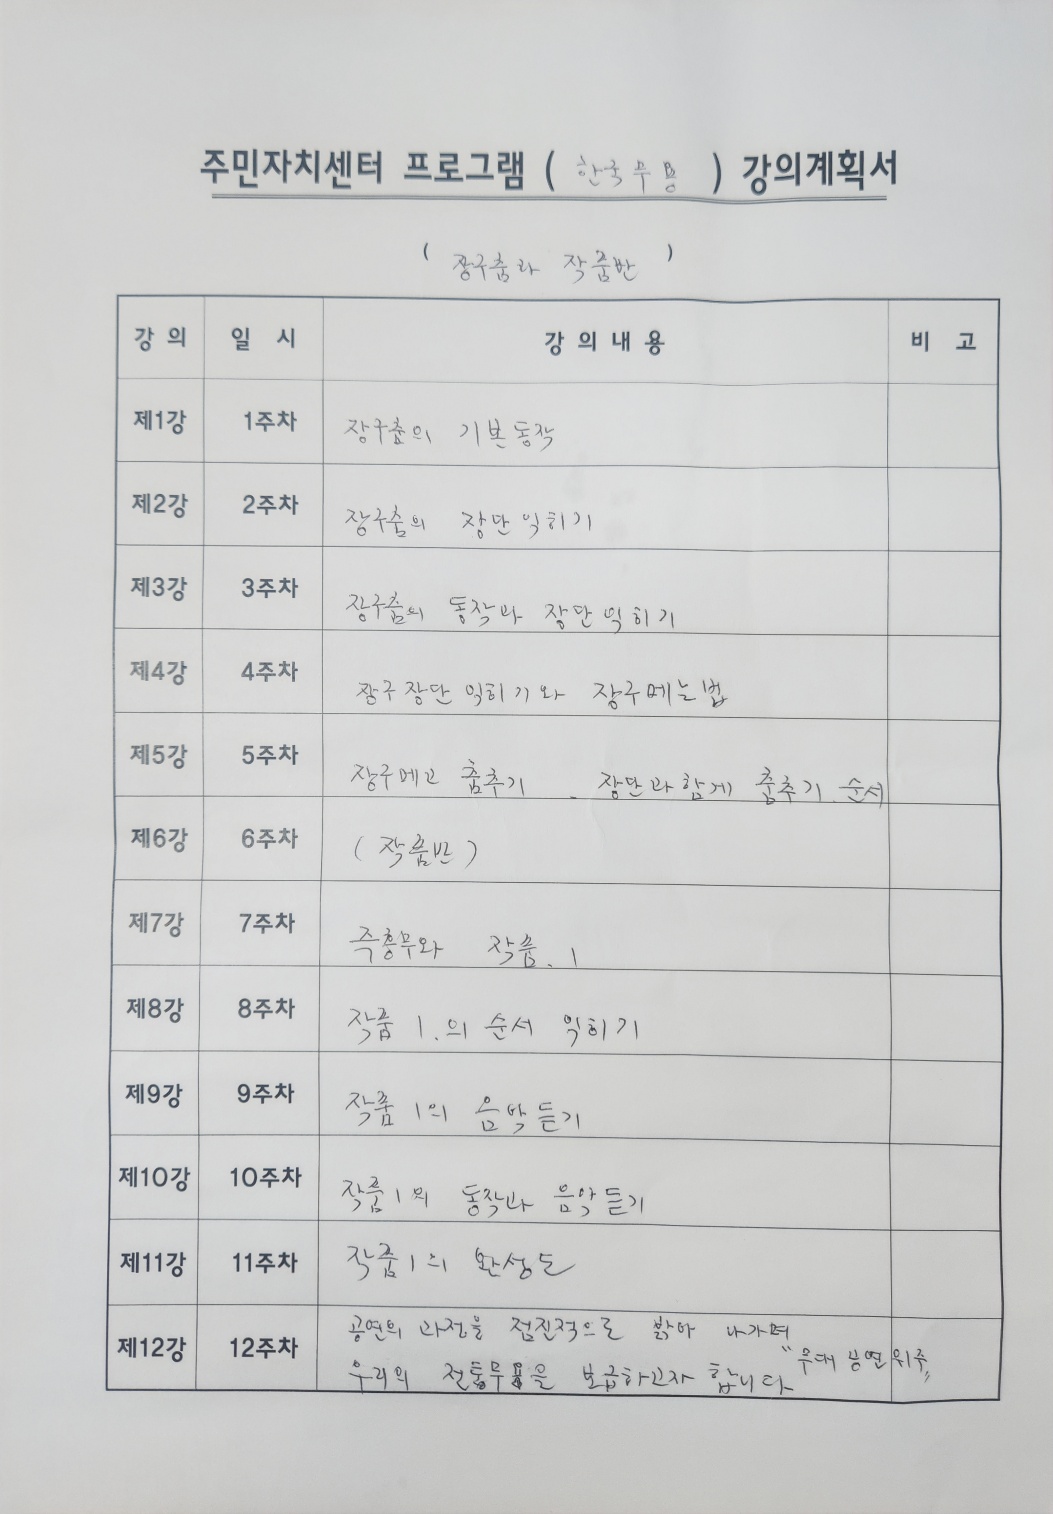 주민자치센터 프로그램 ( 한국무용 ) 강의계획서
( 장구춤과 작품반 )
강 의 일 시 강 의 내 용 비 고
제1강 1주차 장구춤의 기본동작
제2강 2주차 장구춤의 장단익히기
제3강 3주차 장구춤의 동작과 장단익히기
제4강 4주차 장구장단익히기와 장구메는법
제5강 5주차 장구메고 춤추기 . 장단과함게 춤추기.순서
제6강 6주차 (작품반)
제7강 7주차 즉흥무와 작품.1
제8강 8주차 작품 1.의 순서 익히기
제9강 9주차 작품 1의 음악듣기
제10강 10주차 작품1의 동작과 음악듣기
제11강 11주차 작품1의 완성도
제12강 12주차 공연의 과정을 점진적으로 밝아 나가며
"무대 공연위주"
우리의 전통무용을 보급하고자 합니다